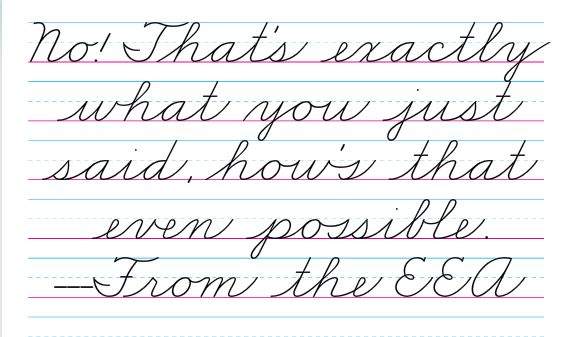 No! That's exactly
what you just
said, how's that
even possible.
---From the EEA